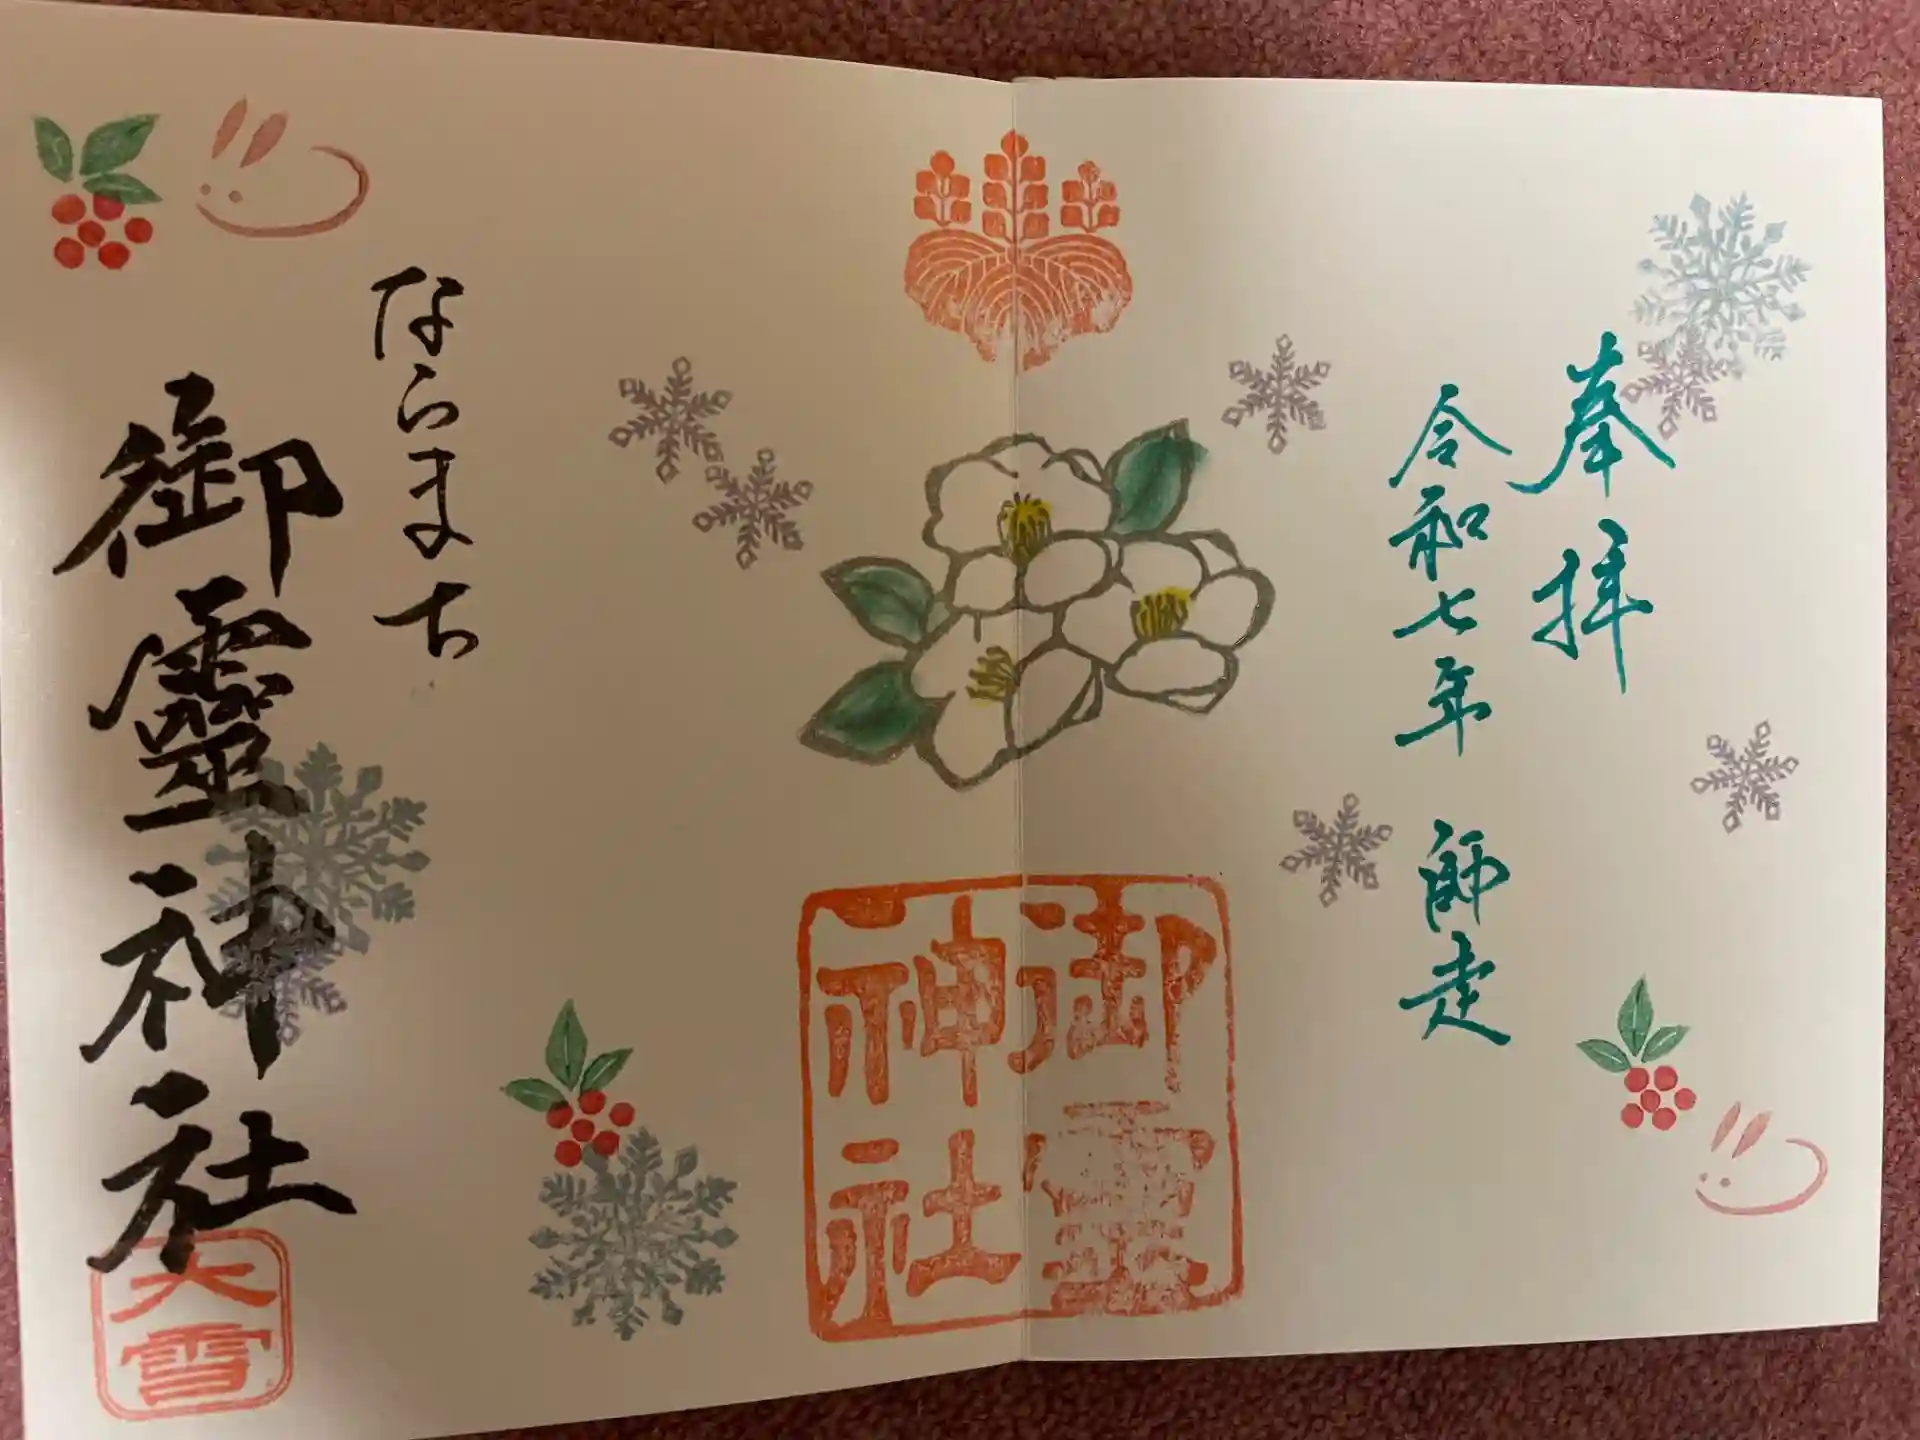 奉拝
令和七年 師走
御霊
神社
ならまち
御靈神社
大雪